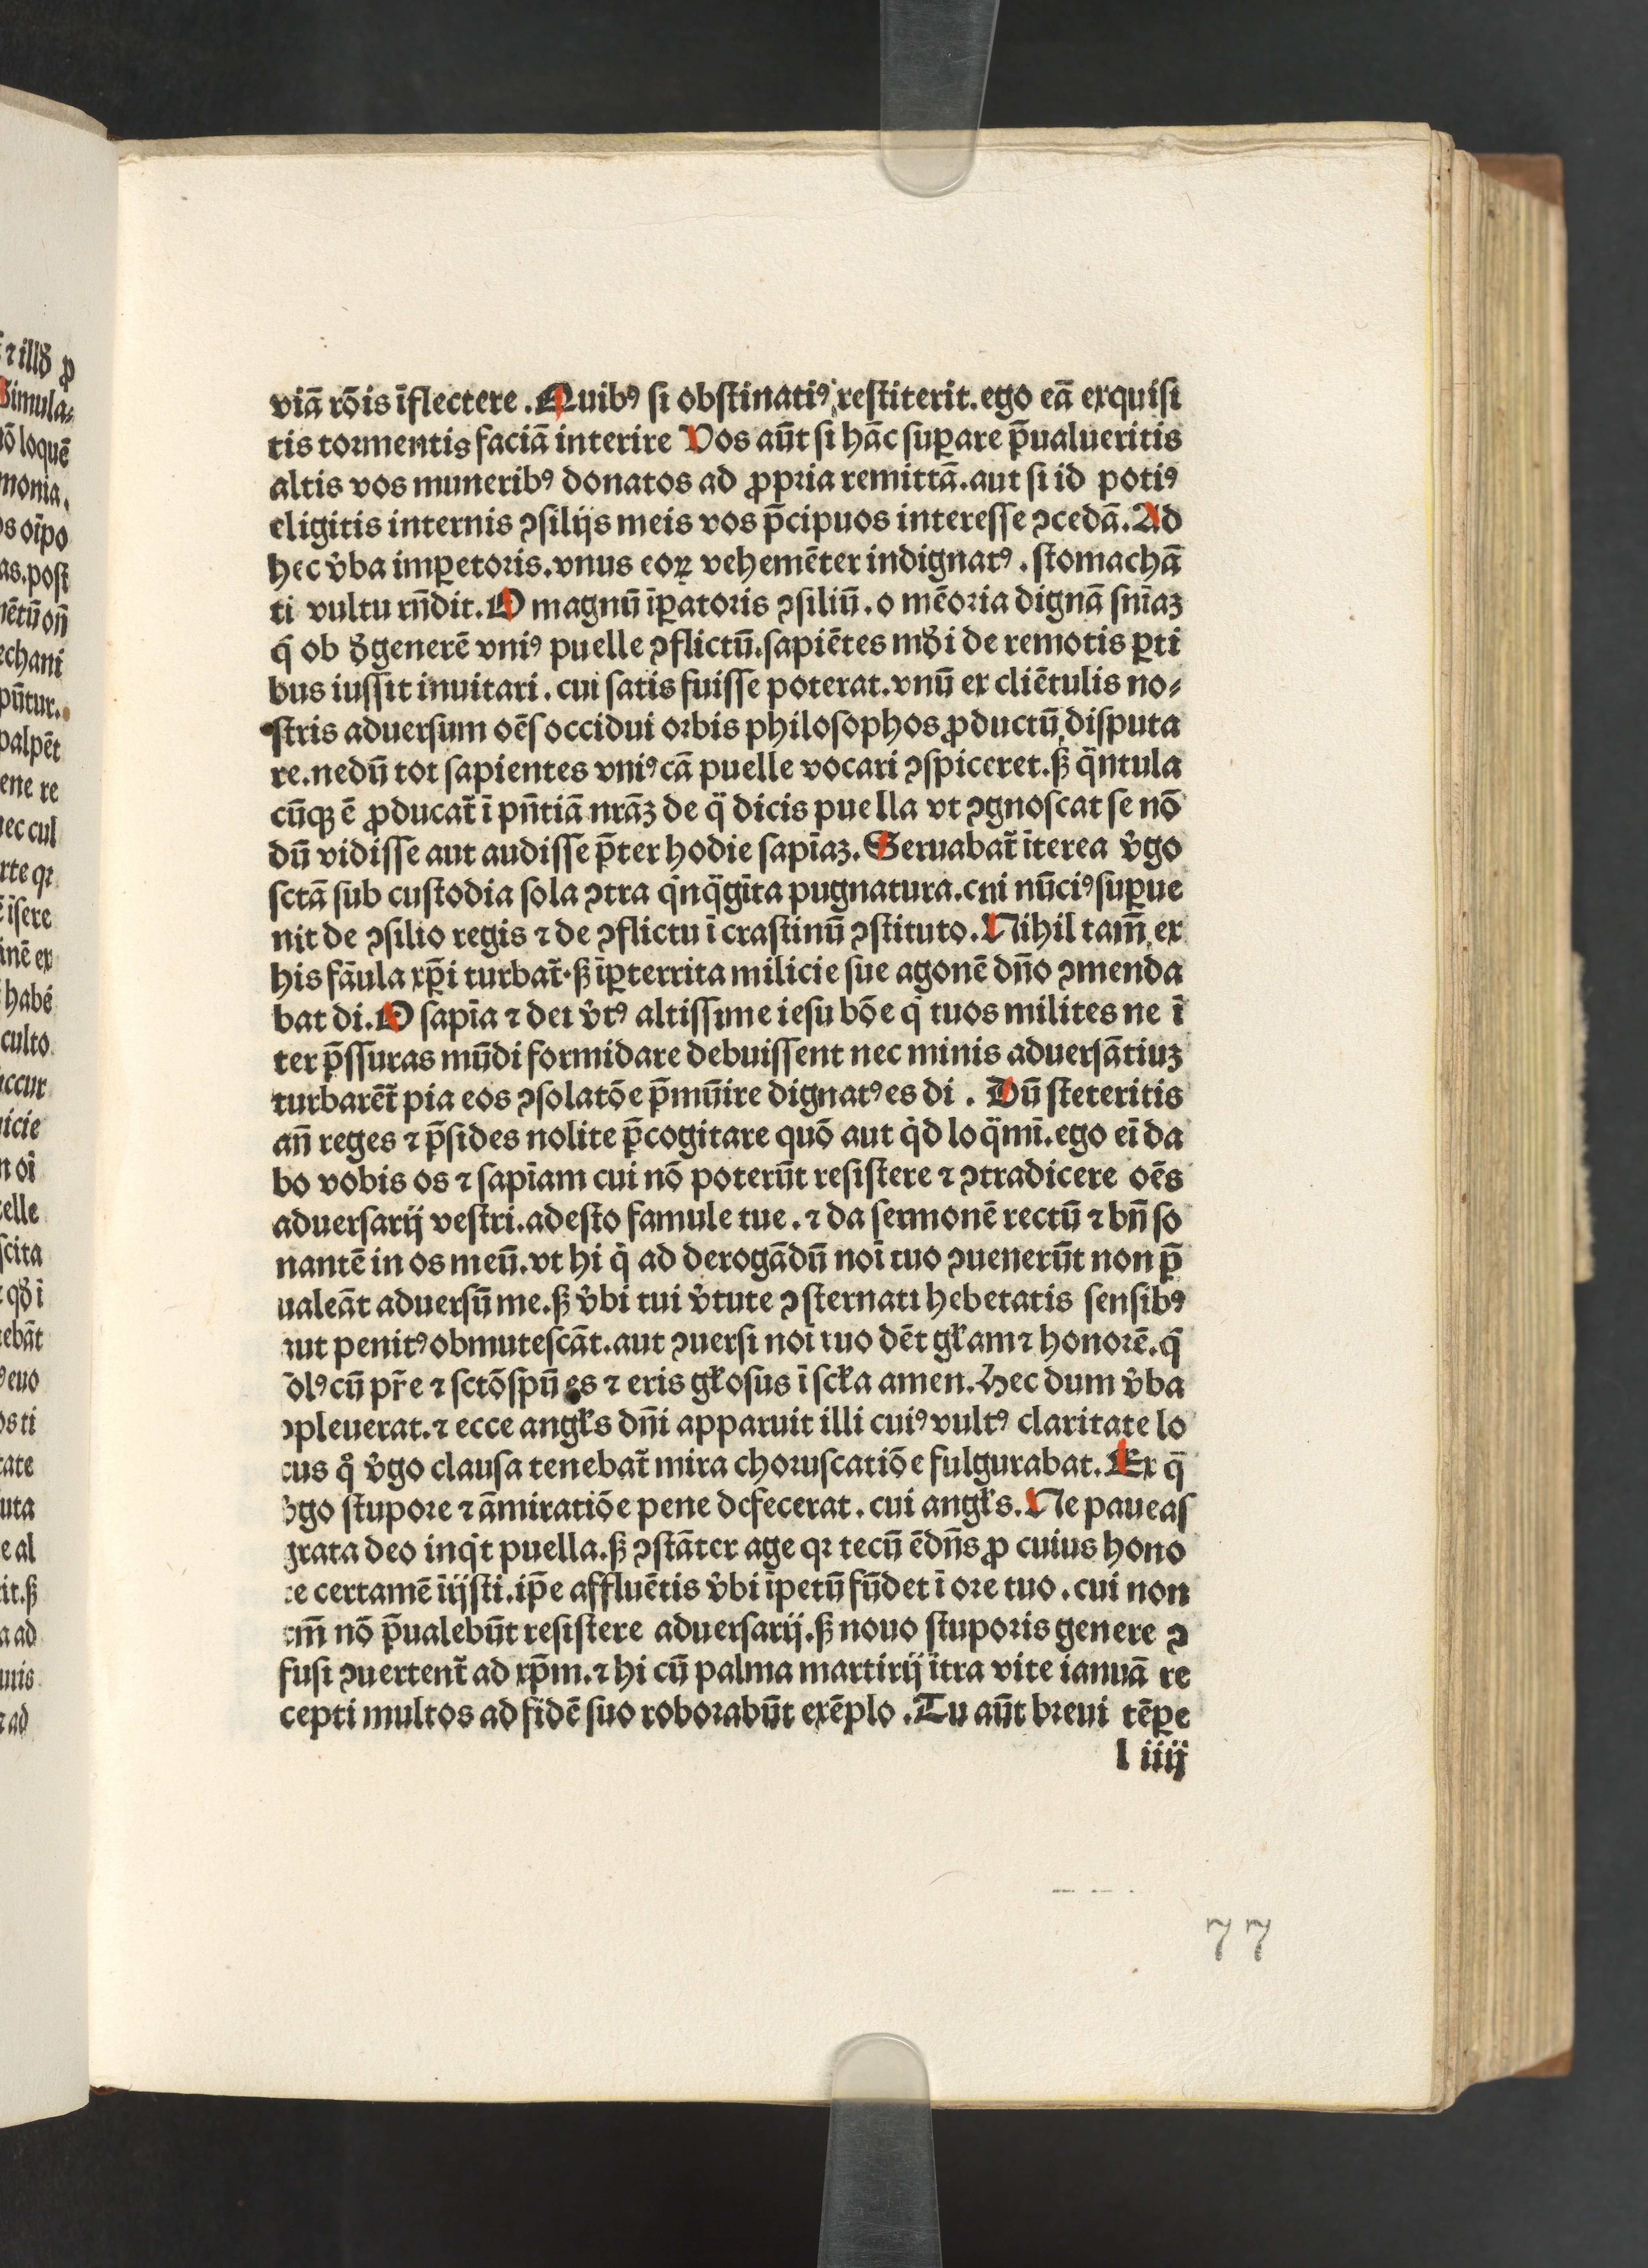 viā rōis īflectere. Quibꝰ si obstinatiꝰ restiterit. ego eā exquisi
tis tormentis faciā interire Vos aūt si hāc suꝑare p̄ualueritis
altis vos muneribꝰ donatos ad ꝓpria remittā. aut si id potiꝰ
eligitis internis ꝯsilijs meis vos p̄cipuos interesse ꝯcedā. Ad
hec v̄ba imꝑetoris. vnus eoꝝ vehemēter indignatꝰ. stomachā
ti vultu rn̄dit. O magnū īꝑatoris ꝯsiliū. o mēoria dignā sn̄iaꝫ
q̄ ob ꝺ̄generē vniꝰ puelle ꝯflictū. sapiētes mꝺ̄i de remotis ꝑti
bus iussit inuitari. cui satis fuisse poterat. vnū ex cliētulis no⸗
stris aduersum oēs occidui orbis philosophos ꝓductū disputa
re. nedū tot sapientes vniꝰ cā puelle vocari ꝯspiceret. ꝭ q̈ntula
cūqꝫ ē ꝓducat᷑ ī pn̄tiā nrāꝫ de q̈ dicis puella vt ꝯgnoscat se nō
dū vidisse aut audisse p̄ter hodie sapīaꝫ. Seruabat᷑ īterea v̄go
sctā sub custodia sola ꝯtra qͥnq̈gīta pugnatura. cni nūciꝰ suꝑue
nit de ꝯsilio regis ⁊ de ꝯflictu ī crastinū ꝯstituto. Nihil tam̄ ex
his fāula xp̄i turbat᷑. ꝭ īꝑterrita milicie sue agonē dn̄o ꝯmenda
bat di. O sapīa ⁊ dei v̄tꝰ altissime iesu bōe qͥ tuos milites ne ī
ter p̄ssuras mūdi formidare debuissent nec minis aduersātiuꝫ
turbarēt᷑ pia eos ꝯsolatōe p̄mūire dignatꝰ es di. Dū steteritis
an̄ reges ⁊ p̄sides nolite p̄cogitare quō aut qͥd loq̈mī. ego eī da
bo vobis os ⁊ sapīam cui nō poterūt resistere ⁊ ꝯtradicere oēs
aduersarij vestri. adesto famule tue. ⁊ da sermonē rectū ⁊ bn̄ so
nantē in os meū. vt hi qͥ ad derogādū noī tuo ꝯuenerūt non p̄
ualeāt aduersū me. ꝭ v̄bi tui v̄tute ꝯsternati hebetatis sensibꝰ
aut penitꝰ obmutescāt. aut ꝯuersi noī tuo dēt gl̄am ⁊ honorē. qͥ
solꝰ cū pr̄e ⁊ sctō spū es ⁊ eris gl̄osus ī scl̄a amen. Hec dum v̄ba
ꝯpleuerat. ⁊ ecce angl̄s dn̄i apparuit illi cuiꝰ vultꝰ claritate lo
cus qͦ v̄go clausa tenebat᷑ mira choruscatiōe fulgurabat. Ex q̄
v̄go stupore ⁊ āmiratiōe pene defecerat. cui angl̄s. Ne paueas
grata deo inqͥt puella. ꝭ ꝯstāter age qꝛ tecū ē dn̄s ꝓ cuius hono
re certamē īijsti. ip̄e affluētis v̄bi īpetū fūdet ī ore tuo. cui non
tm̄ nō p̄ualebūt resistere aduersarij. ꝭ nouo stuporis genere ꝯ
fusi ꝯuertent᷑ ad xp̄m. ⁊ hi cū palma martirij ītra vite ianuā re
cepti multos ad fidē suo roborabūt exēplo. Tu aūt breui tēꝑe
l iiij
77